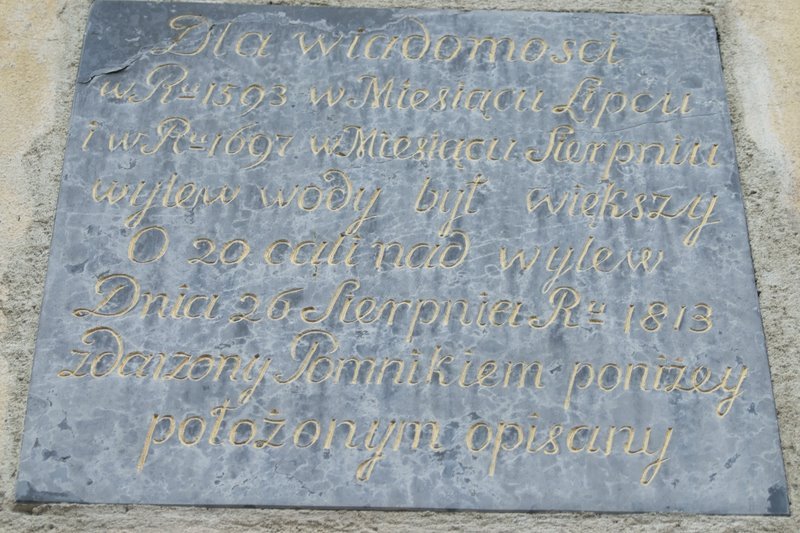 Dla wiadomosci
w Ru 1593. w Miesiącu Lipcu
i w Ru 1697 w Miesiącu Sierpniu
wylew wody był większy
O 20 cąli nad wylew
Dnia 26 Sierpnia Ru 1813
zdarzony Pomnikiem poniżey
położonym opisany